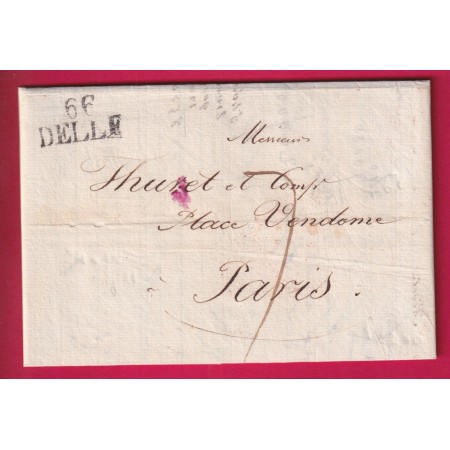 66
DELLE
Messieurs
Thuret et Comp.
Place Vendome
à Paris.
7